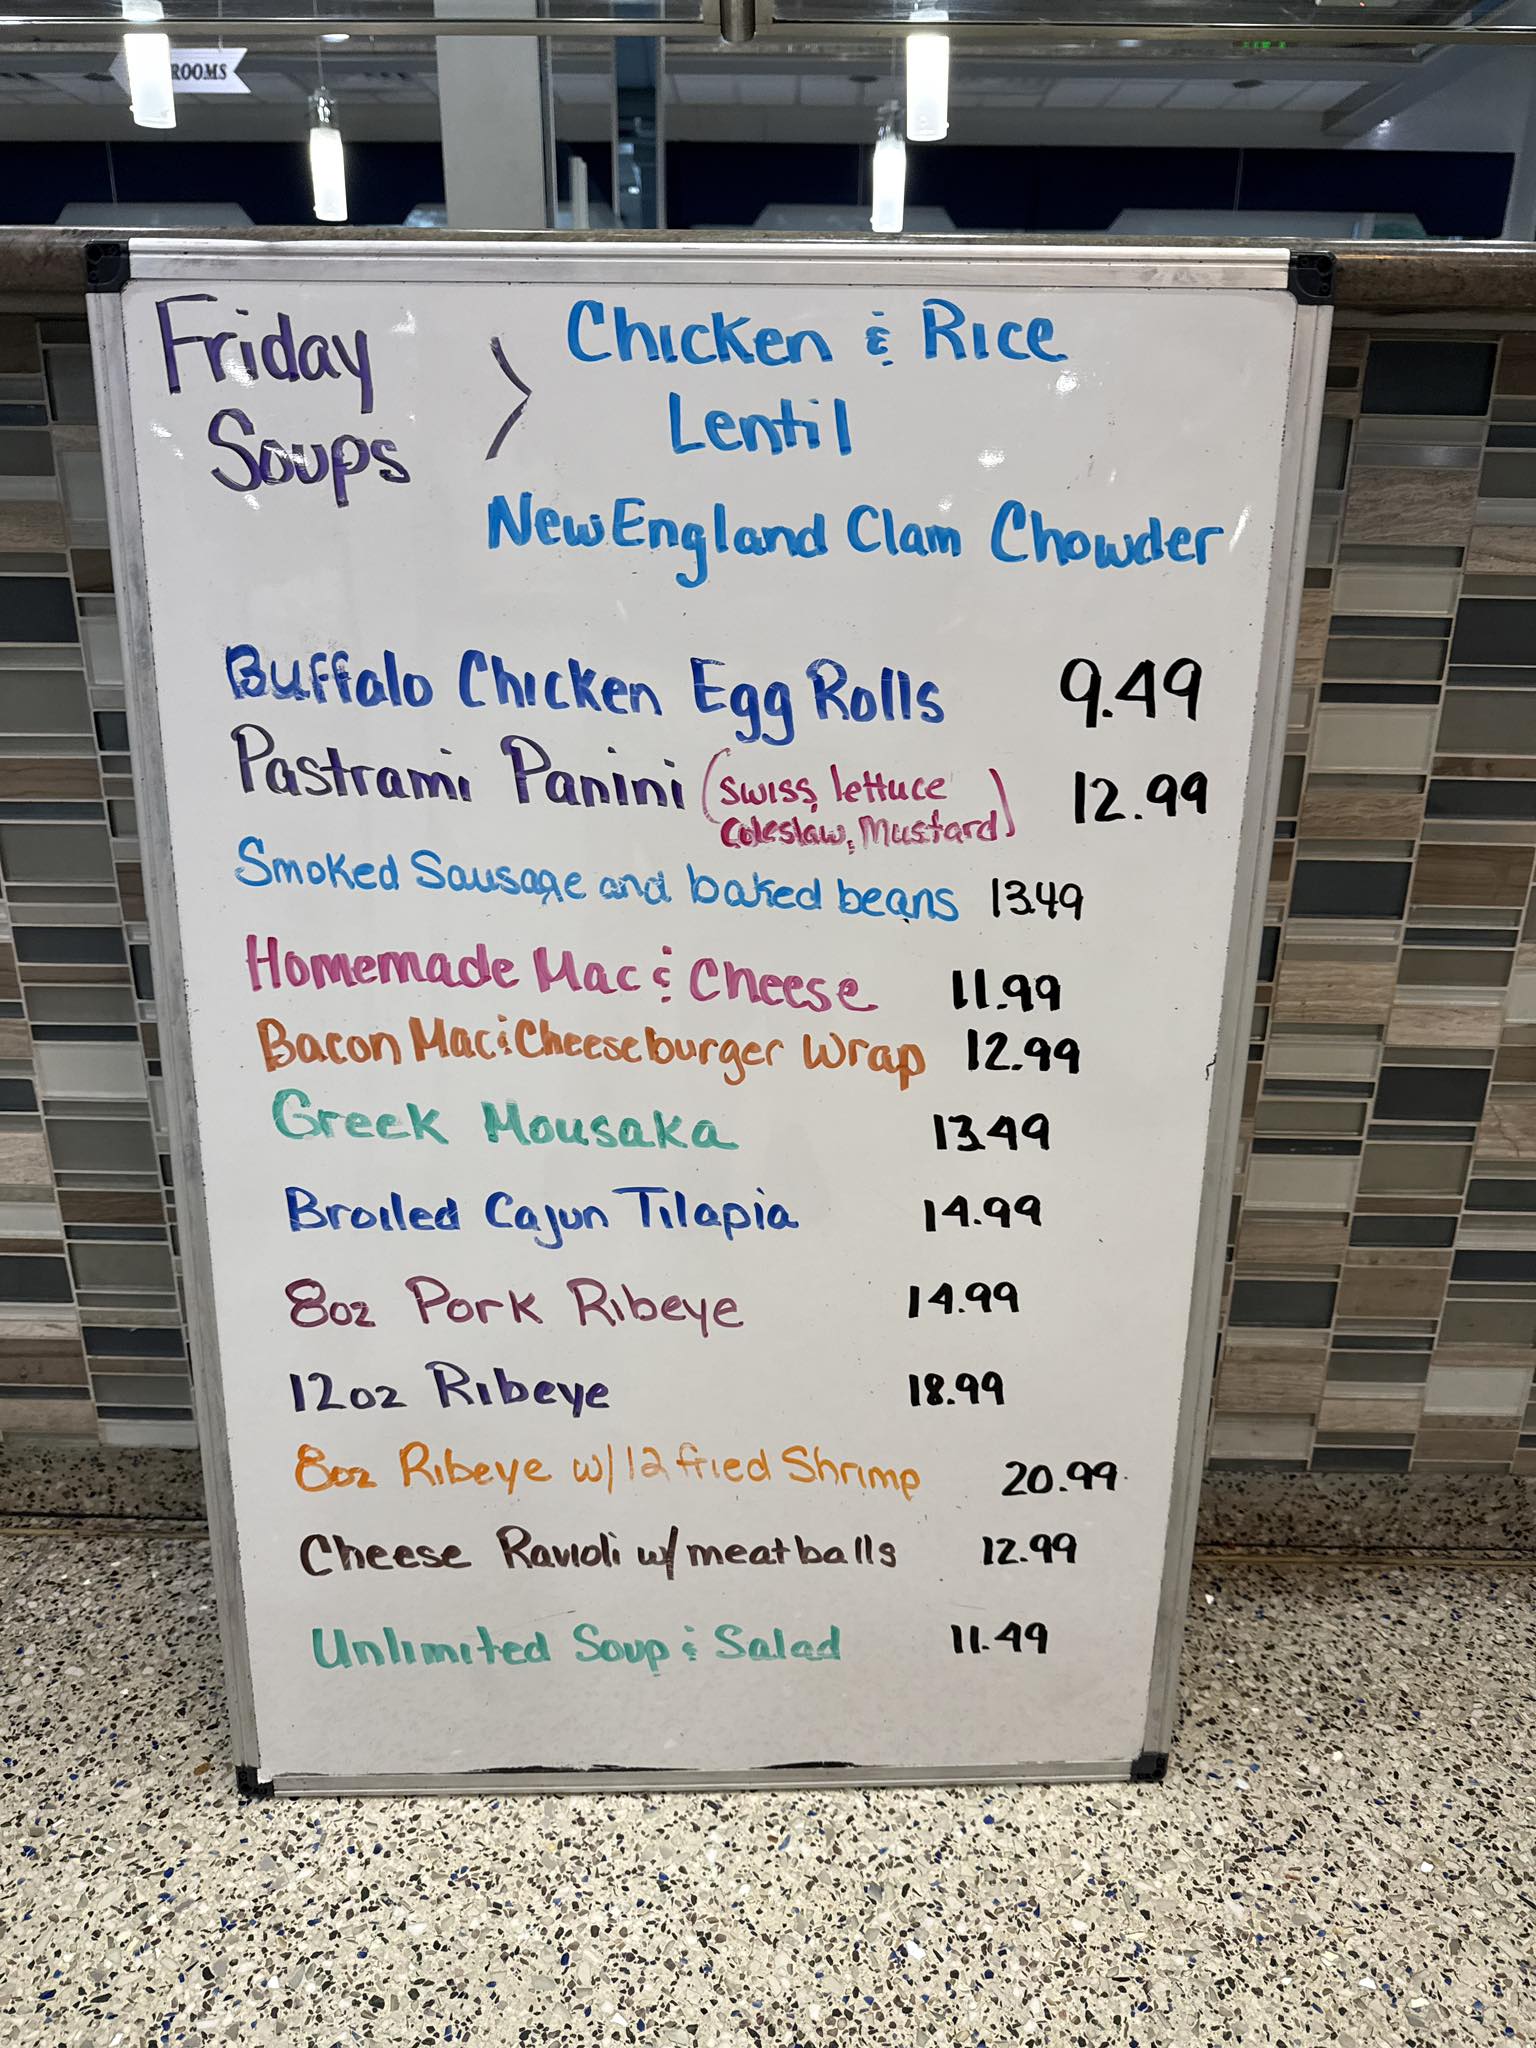 ROOMS
Friday
Soups
Chicken & Rice
Lentil
New England Clam Chowder
Buffalo Chicken Egg Rolls 9.49
Pastrami Panini (Swiss, lettuce 12.99
Coleslaw, Mustard)
Smoked Sausage and baked beans 13.49
Homemade Mac & Cheese 11.99
Bacon Mac & Cheeseburger Wrap 12.99
Greek Mousaka 13.49
Broiled Cajun Tilapia 14.99
8oz Pork Ribeye 14.99
12oz Ribeye 18.99
8oz Ribeye w/ 12 fried Shrimp 20.99
Cheese Ravioli w/ meatballs 12.99
Unlimited Soup & Salad 11.49